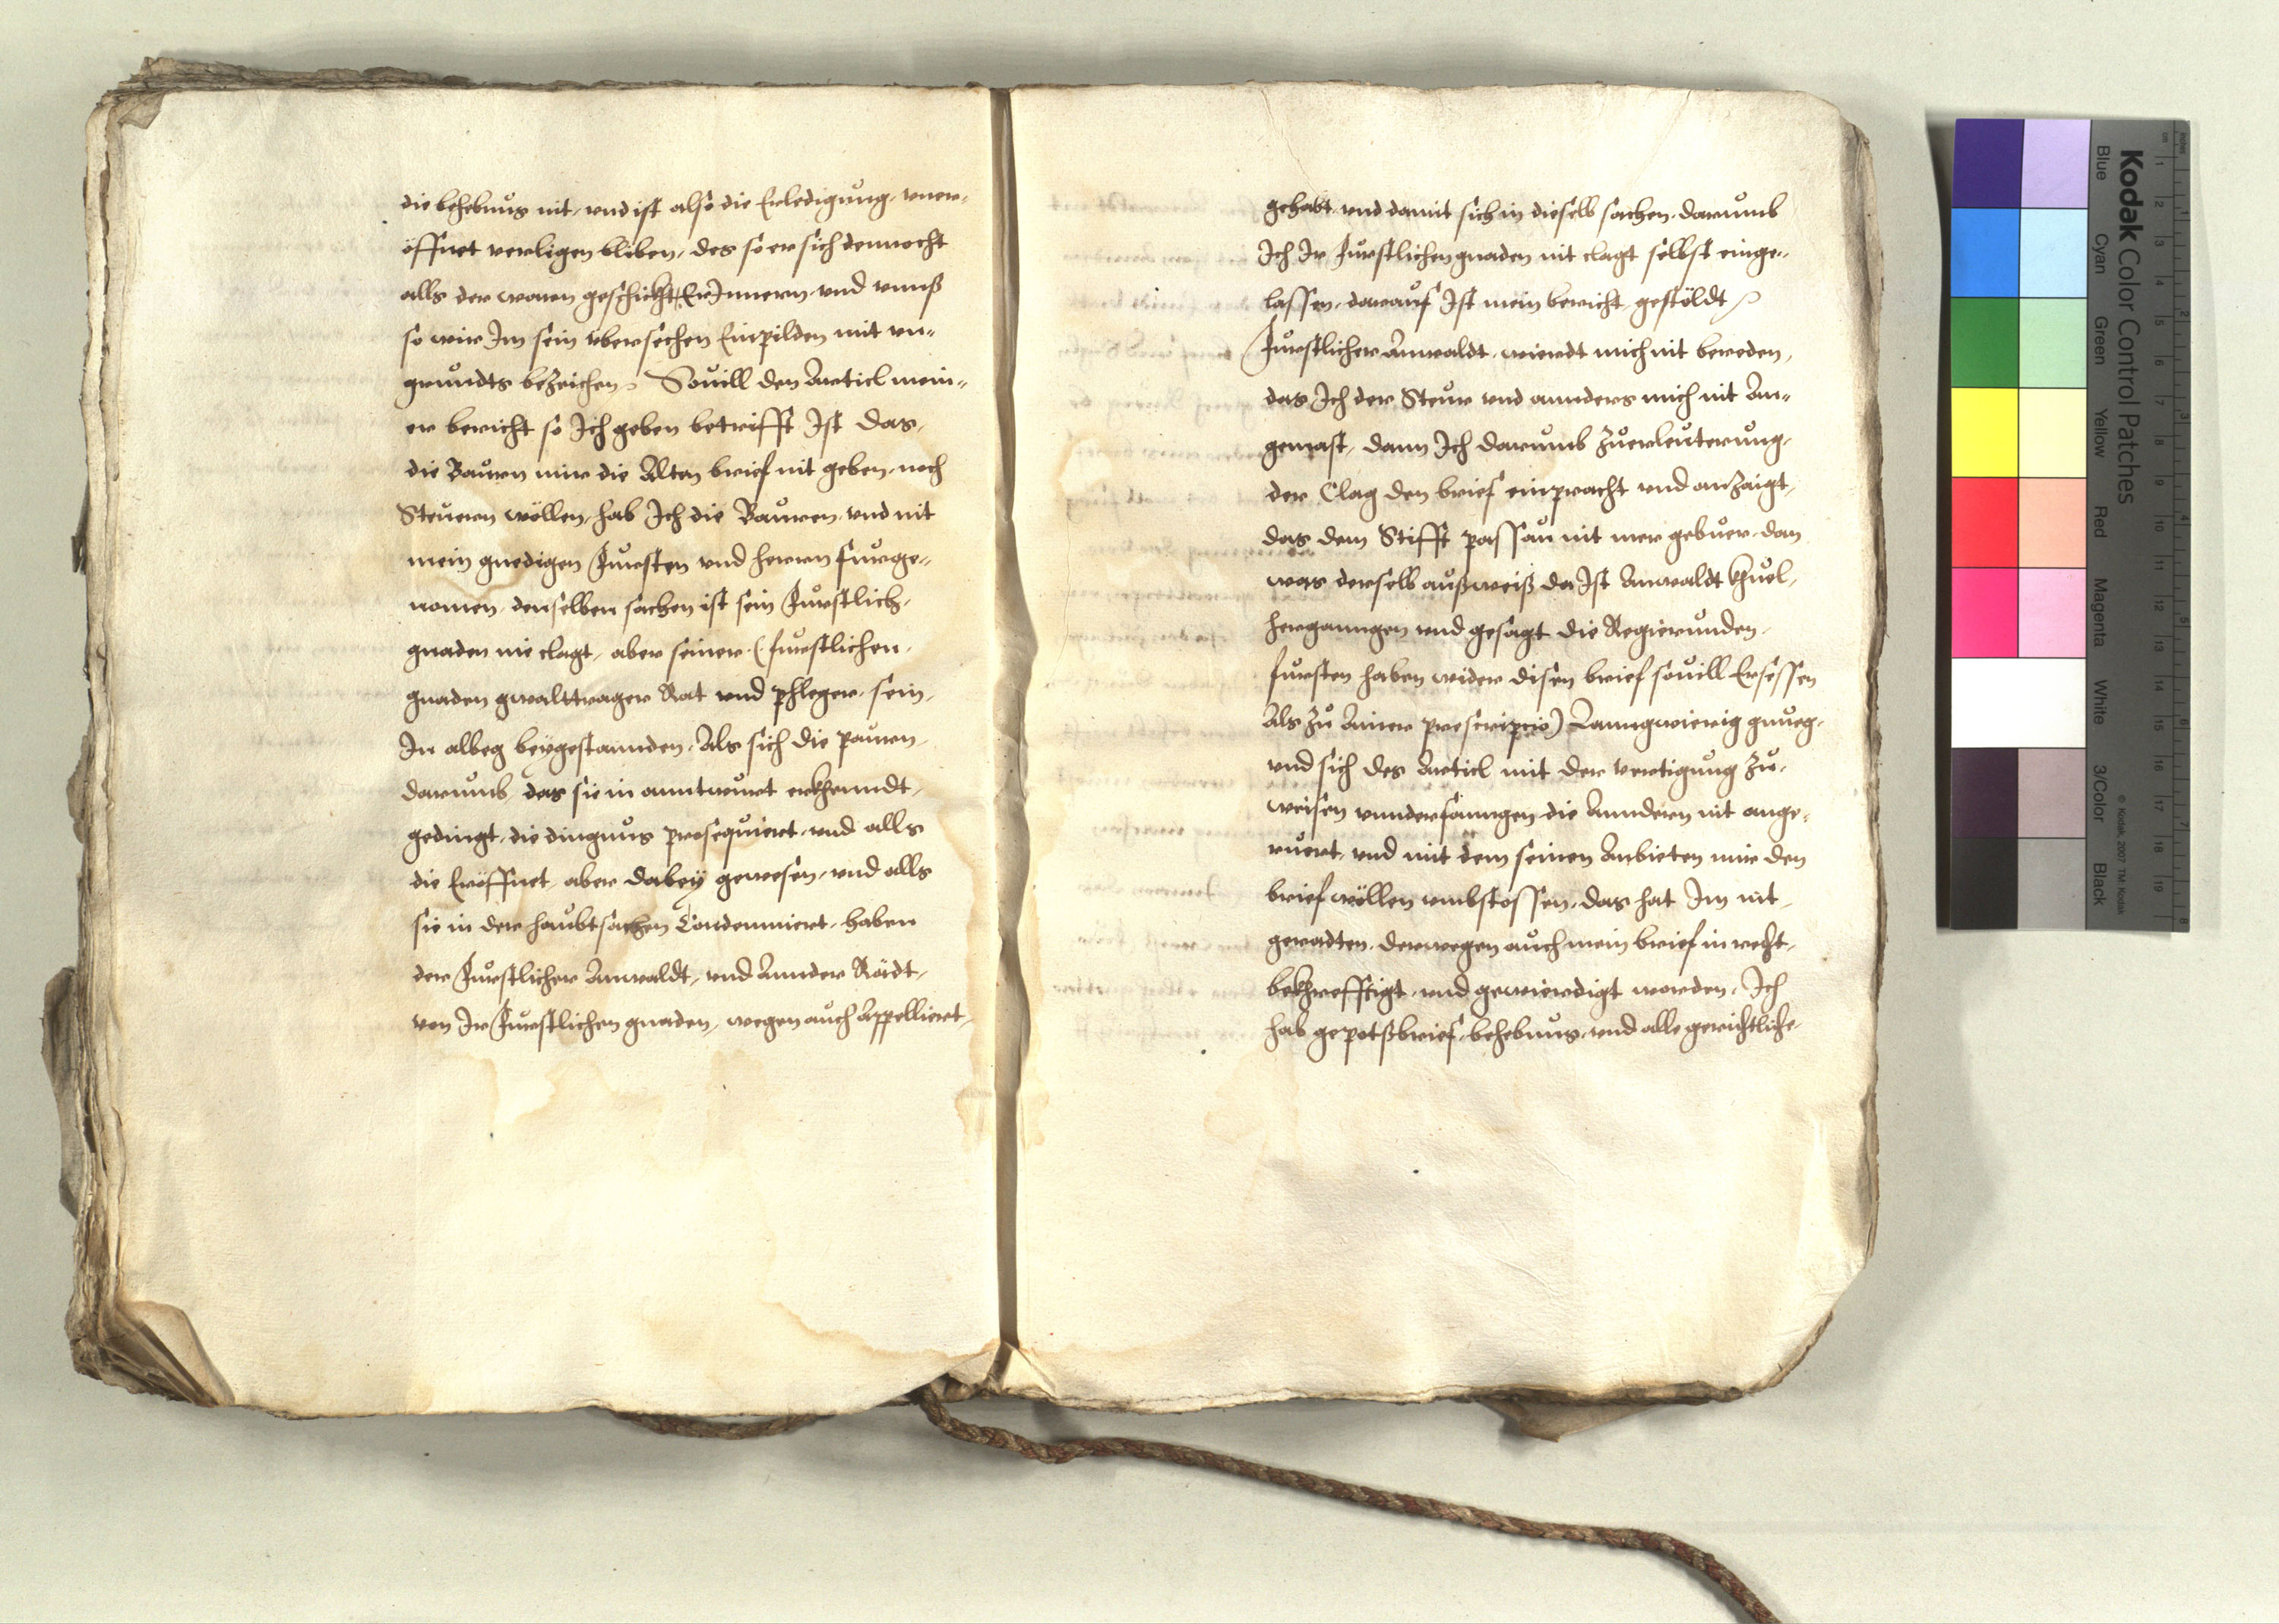 die behebnus nit, und ist also die Erledigung, uner-
öffnet verligen bliben, des so er sich dennocht
alls der waren geschicht, Erinnern, und unnß
so wir Im sein übersechen Einpilden mit un-
grundts bezeichen. Souill den Articl mein-
er bericht so Ich geben betrifft Ist das,
die Baurn mir die Alten brief nit geben, noch
Steuern wöllen, hab Ich die Bauren, und nit
mein gnedigen Fursten und herrn furge-
nomen, denselben sachen ist sein Furstlich,
gnaden nie clagt, aber seiner (furstlichen,
gnaden gwalttrager Rat und phleger, sein,
In albeg beygestannden, Als sich die pauren,
darumb, das sie in anntwurt erkhenndt,
gedingt, die dingnus prosequiert, und alls
die Eröffnet, aber dabey gewesen, und alls
sie in der haubtsachen Condemniert, haben
der Furstlicher Anwaldt, und Annder Rädt,
von Ir Furstlichen gnaden, wegen auch Appelliert,
gehabt, und damit sich in dieselb sachen, darumb
Ich Ir Furstlichen gnaden nit clagt selbst einge-
lassen, darauf Ist mein bericht, gestöldt
Furstlicher Anwaldt, wierdt mich nit bereden,
das Ich der Steur und annders mich nit An-
gemast, dann Ich darumb zuerleuterung,
der Clag den brief einpracht und anzaigt,
das dem Stifft passau nit mer gebuer, dan
was derselb außweiß da Ist Anwaldt khuel,
herganngen und gesagt die Regierunden,
fursten haben wider disen brief souill Ersessen
Als zu Ainer prescripcio) Lanngwierig gnueg,
und sich des Articl mit der vertigung zu,
weisen unnderfanngen die Anndern nit ange-
ruert, und mit dem seinen Anbieten mir den
brief wöllen umbstossen, das hat Im nit,
geradten, derwegen auch mein brief in recht,
bekhrefftigt, und gewierdigt worden, Ich
hab gepotßbrief, behebnus, und alle gerichtliche,
Kodak Color Control Patches
Blue Cyan Green Yellow Red Magenta White 3/Color Black
© Kodak, 2007 TM: Kodak